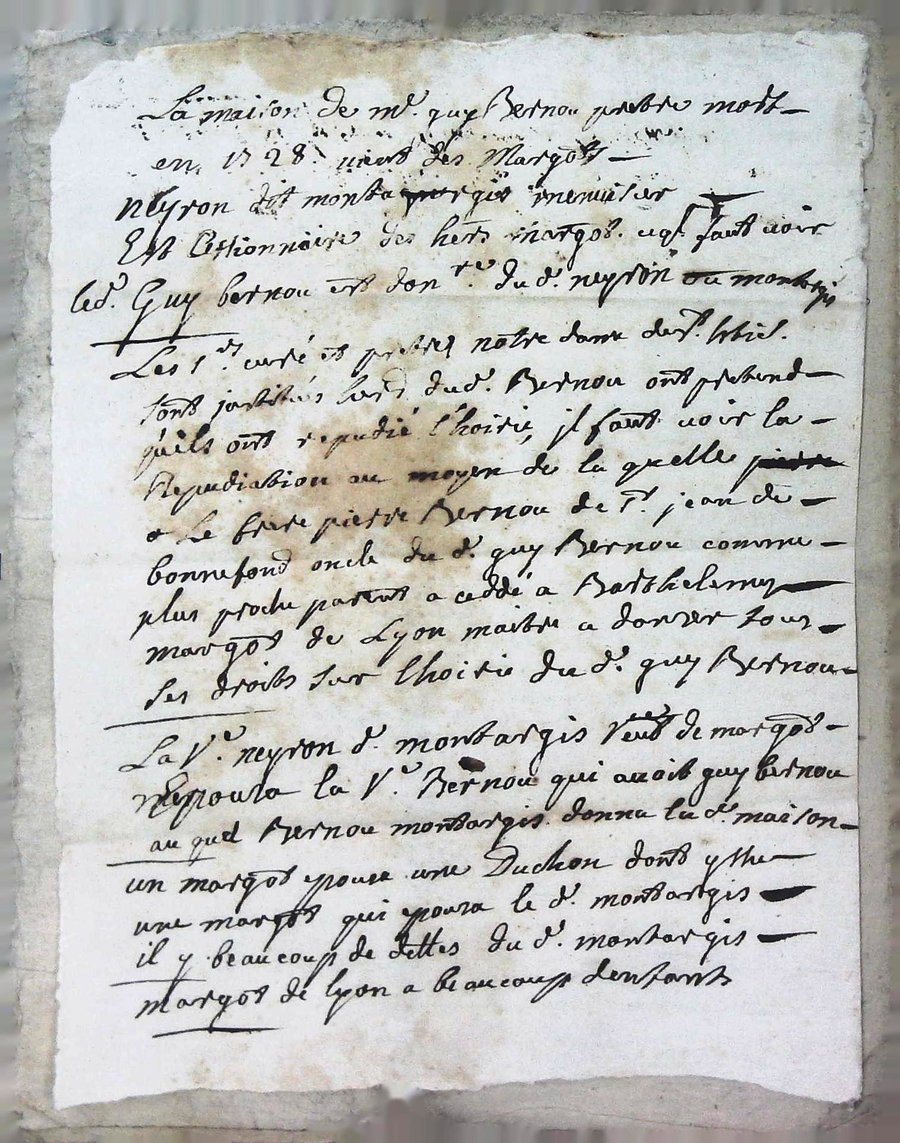 La maison de mr. guy Bernou prebtre mort
en 1728. vient des Margots
Neyron dit montargis menuisier
Est Cessionnaire des hers margot. faut voir
led. Guy bernou est don re. dud. neyron ou montargis
Les srs. curé et prebtres notre dame
sont justitués hers dud. Bernou ont pretend
quils ont repudié l'hoirie, jl faut voir la
Repudiation au moyen de la quelle pierre
Le frere pierre Bernou de st. jean de
bonnefond oncle du d. guy Bernou comme
plus proche parent a ceddé a Barthelemy
margot de Lyon maitre a danser tous
ses droits sur lhoirie du d. guy Bernou
La Ve. neyron d. montargis veuf de margot
Repousa la Ve. Bernou qui avoit guy bernou
au quel Bernou montargis donna lad. maison
un margot epousa une Duchon dont
une margot qui epousa le d. montargis
il y beaucoup de dettes du d. montargis
margot de lyon a beaucoup denfants